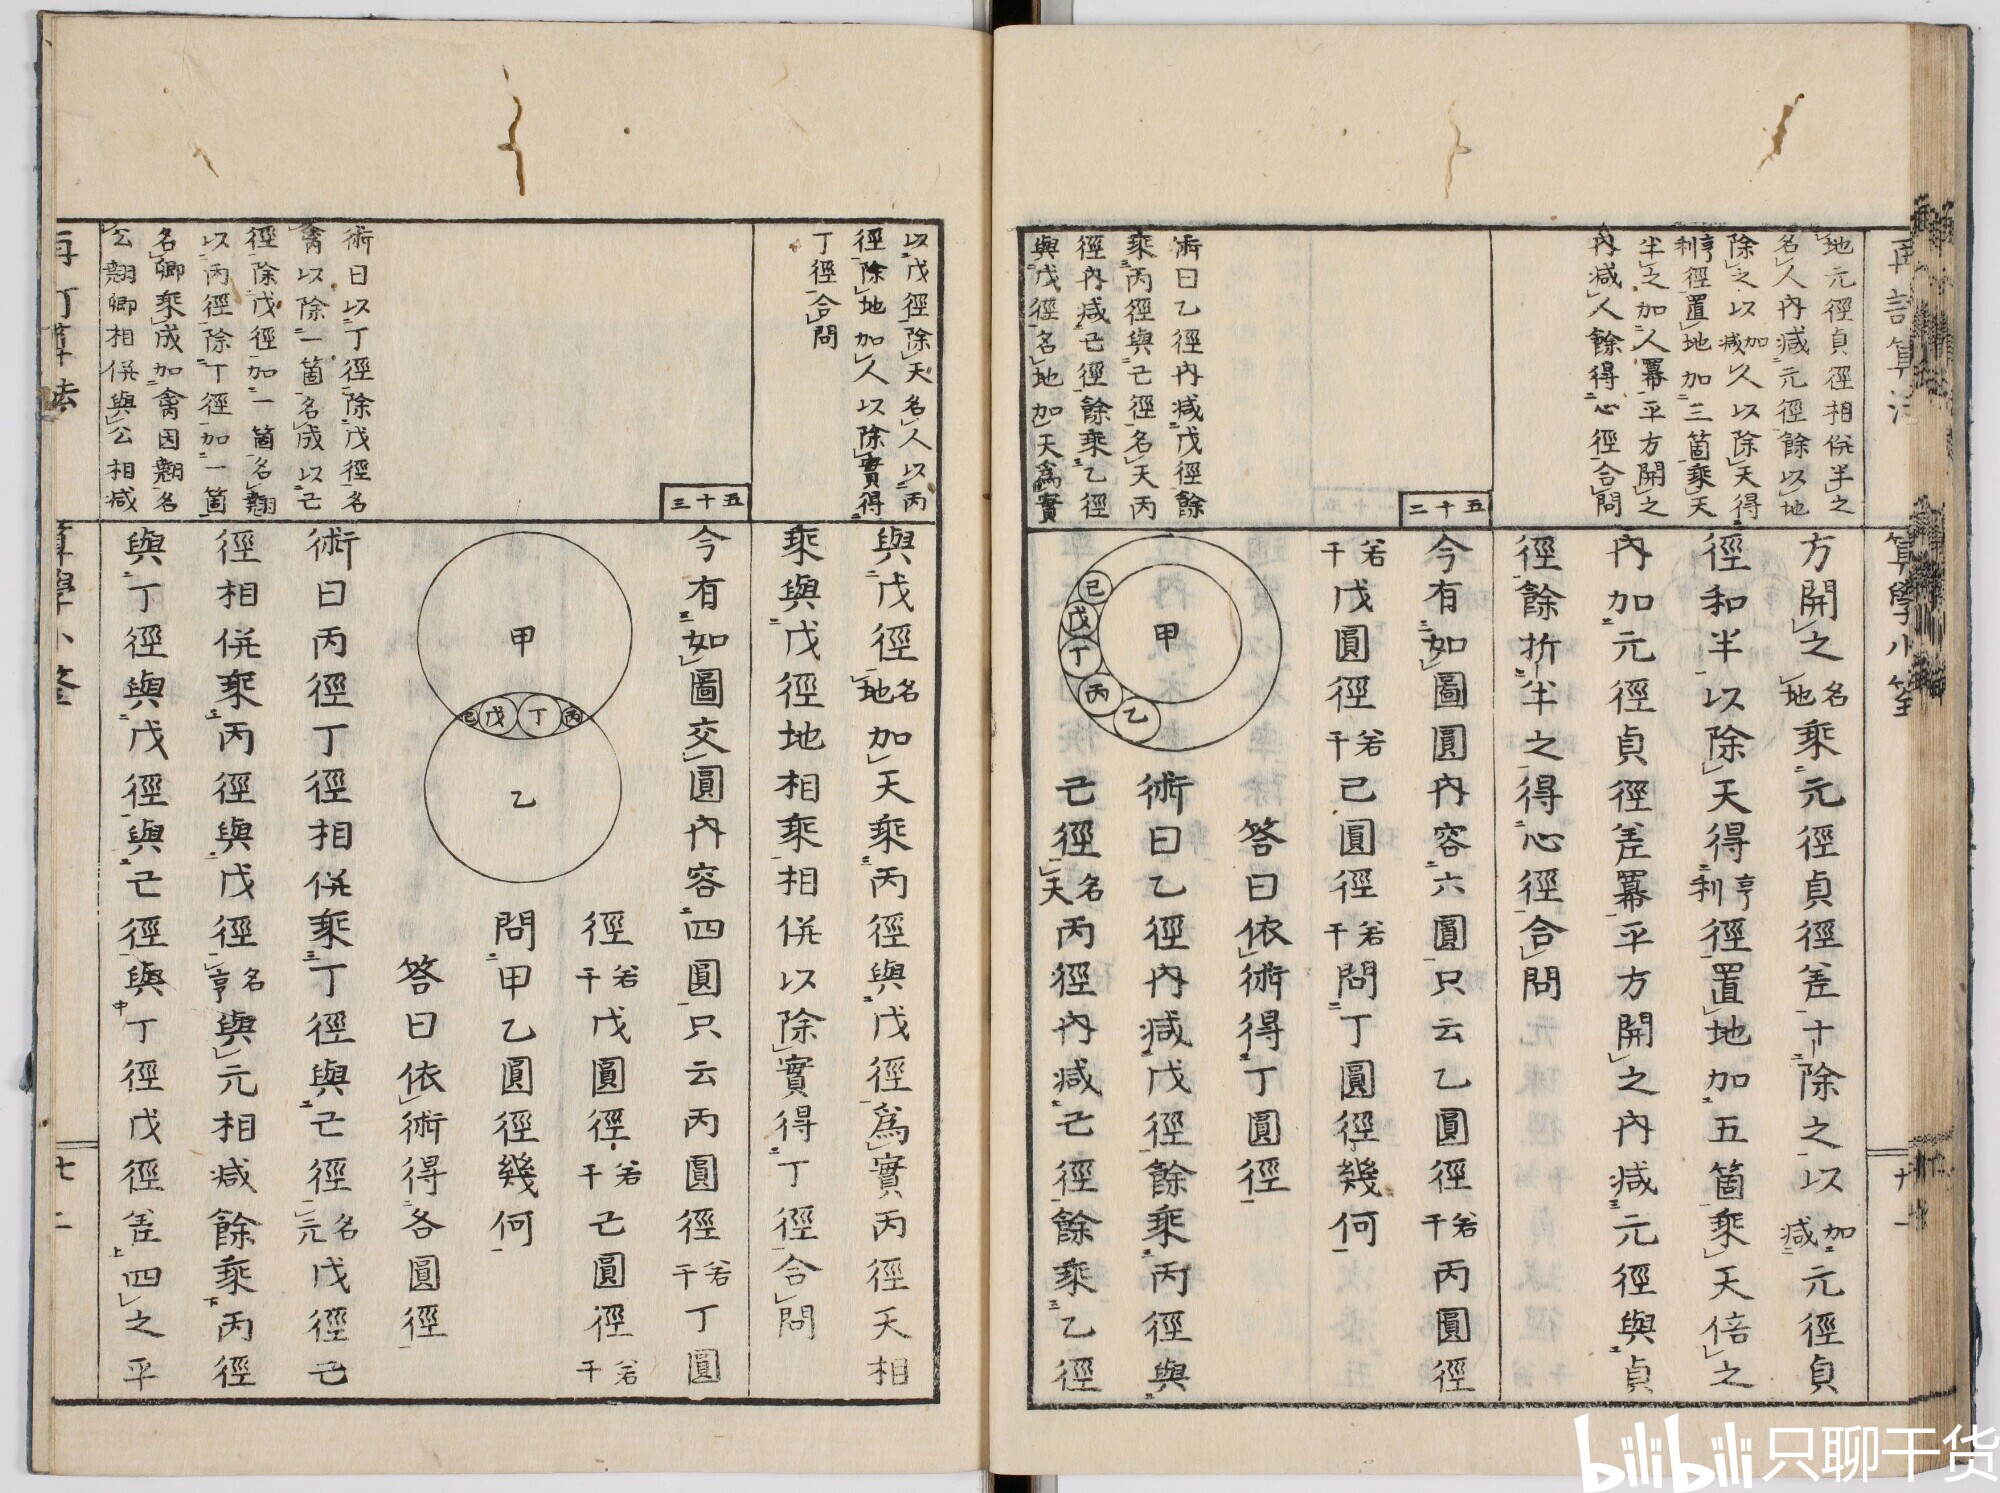 再訂算法
算學小筌
地元徑貞徑相併半之
名人內減元徑餘以地
除之以加減人以除天得
亨利徑置地加三箇乘天
半之加人冪平方開之
內減人餘得心徑合問
方開之名地乘元徑貞徑差十除之以加減元徑貞
徑和半以除天得亨利徑置地加五箇乘天倍之
內加元徑貞徑差冪平方開之內減元徑與貞
徑餘折半之得心徑合問
五十二
今有如圖圓內容六圓只云乙圓徑若干丙圓徑
若干戊圓徑若干己圓徑若干問丁圓徑幾何
答曰依術得丁圓徑
術曰乙徑內減戊徑餘乘丙徑與
己徑名天丙徑內減己徑餘乘乙徑
甲
乙
丙
丁
戊
己
術曰乙徑內減戊徑餘
乘丙徑與己徑名天丙
徑內減己徑餘乘乙徑
與戊徑名地加天為實
以戊徑除天名人以丙
徑除地加人以除實得
丁徑合問
與戊徑名地加天乘丙徑與戊徑為實丙徑天相
乘與戊徑地相乘相併以除實得丁徑合問
五十三
今有如圖交圓內容四圓只云丙圓徑若干丁圓
徑若干戊圓徑若干己圓徑若干
問甲乙圓徑幾何
答曰依術得各圓徑
甲
丙
丁
戊
己
乙
術曰丙徑丁徑相併乘丁徑與己徑名元戊徑己
徑相併乘丙徑與戊徑名亨與元相減餘乘丙徑
與丁徑與戊徑與己徑與丁徑戊徑差四之平
術曰以丁徑除戊徑名
禽以除一箇名成以己
徑除戊徑加一箇名翱
以丙徑除丁徑加一箇
名卿乘成加禽因翱名
公翱卿相併與公相減
再訂算法
算學小筌
七十二